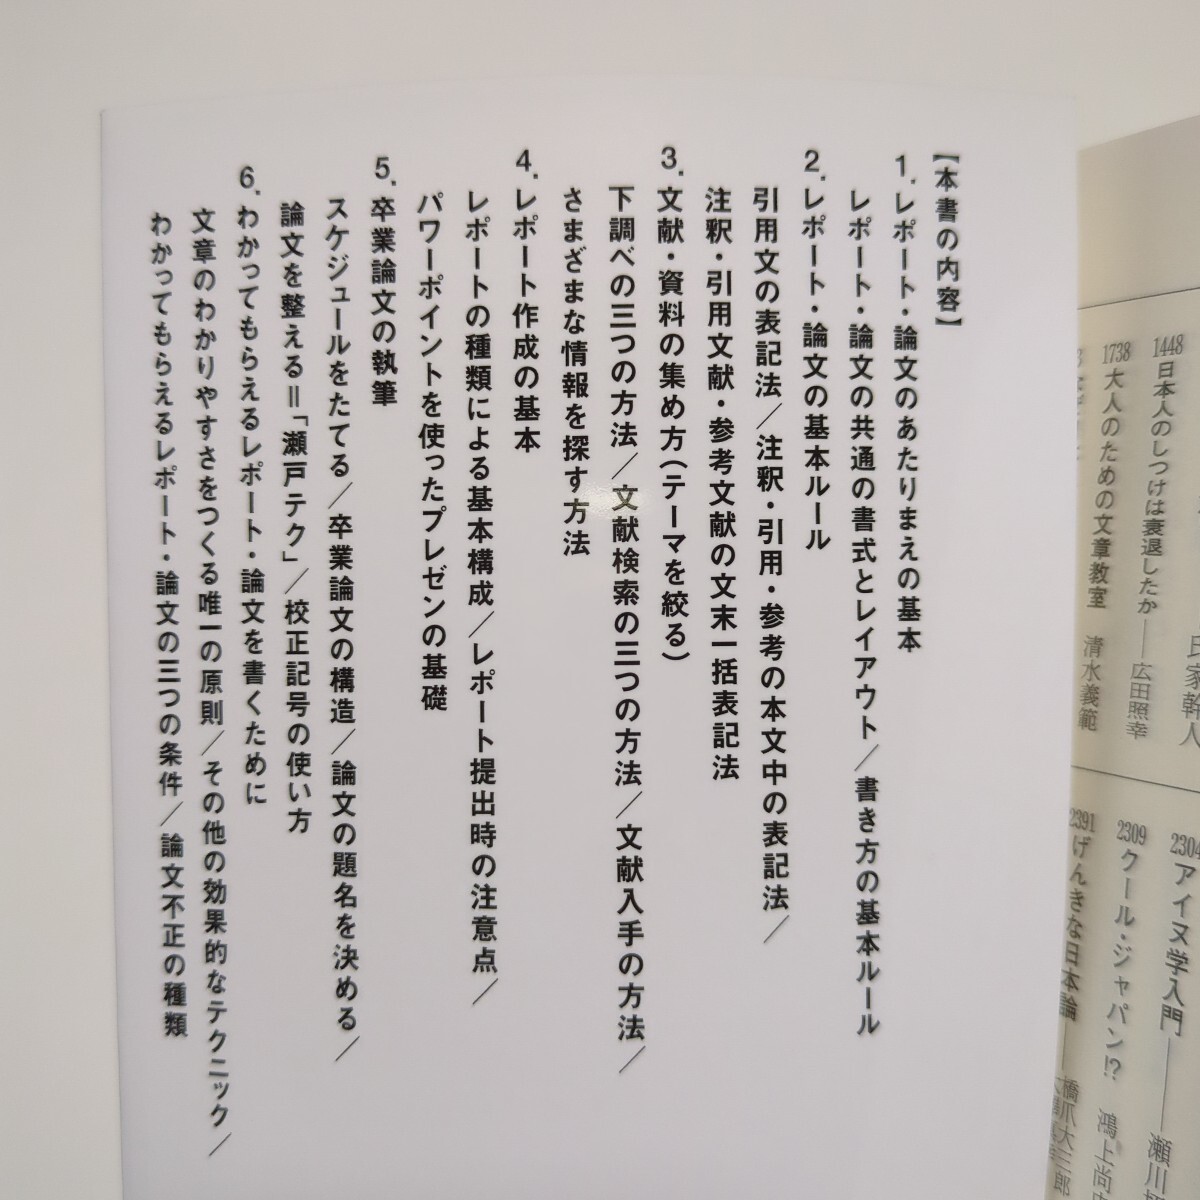 【本書の内容】
1.レポート・論文のあたりまえの基本
レポート・論文の共通の書式とレイアウト／書き方の基本ルール
2.レポート・論文の基本ルール
引用文の表記法／注釈・引用・参考の本文中の表記法／
注釈・引用文献・参考文献の文末一括表記法
3.文献・資料の集め方(テーマを絞る)
下調べの三つの方法／文献検索の三つの方法／文献入手の方法／
さまざまな情報を探す方法
4.レポート作成の基本
レポートの種類による基本構成／レポート提出時の注意点／
パワーポイントを使ったプレゼンの基礎
5.卒業論文の執筆
スケジュールをたてる／卒業論文の構造／論文の題名を決める／
論文を整える=「瀬戸テク」／校正記号の使い方
6.わかってもらえるレポート・論文を書くために
文章のわかりやすさをつくる唯一の原則／その他の効果的なテクニック／
わかってもらえるレポート・論文の三つの条件／論文不正の種類
氏家幹人
1448 日本人のしつけは衰退したか——広田照幸
1738 大人のための文章教室 清水義範
2304 アイヌ学入門——瀬川
2309 クール・ジャパン!? 鴻上尚
2391 げんきな日本論——橋爪大三郎